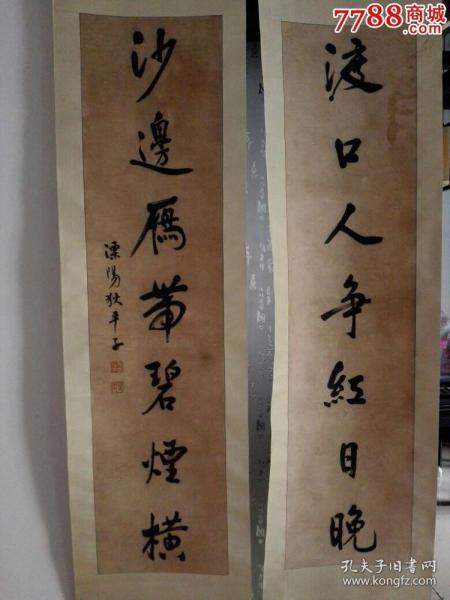 7788商城
.com
渡口人争紅日晚
沙邊雁帶碧煙橫
溧陽狄平子
孔夫子旧书网
www.kongfz.com